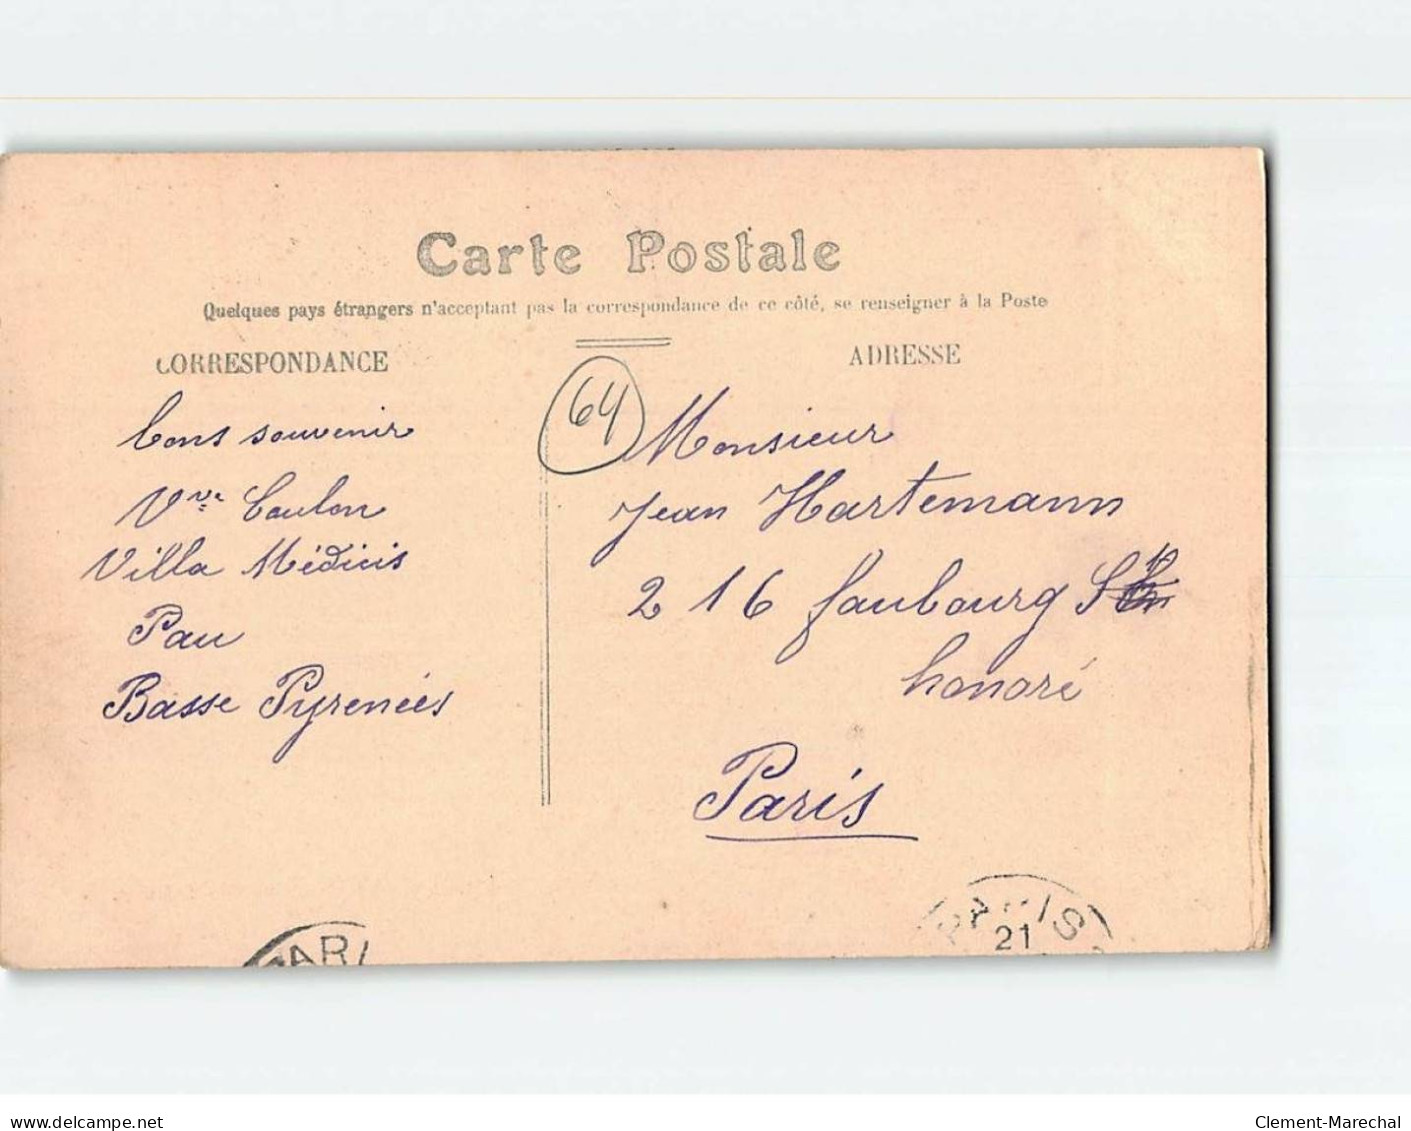 Carte Postale
Quelques pays étrangers n'acceptant pas la correspondance de ce côté, se renseigner à la Poste
CORRESPONDANCE
bons souvenir
Vve Coulon
Villa Médicis
Pau
Basse Pyrenées
64
ADRESSE
Monsieur
Jean Hartemann
216 faubourg St
honoré
Paris
PARI
PARIS
21
delcampe.net
Clement-Marechal